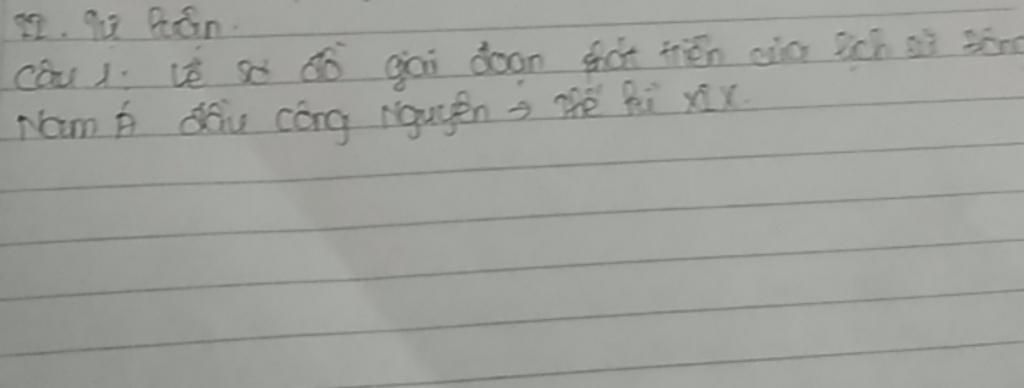 II. Tự luận.
Câu 1: Vẽ sơ đồ giai đoạn phát triển của lịch sử Đông
Nam Á đầu công nguyên → thế kỉ XIX.